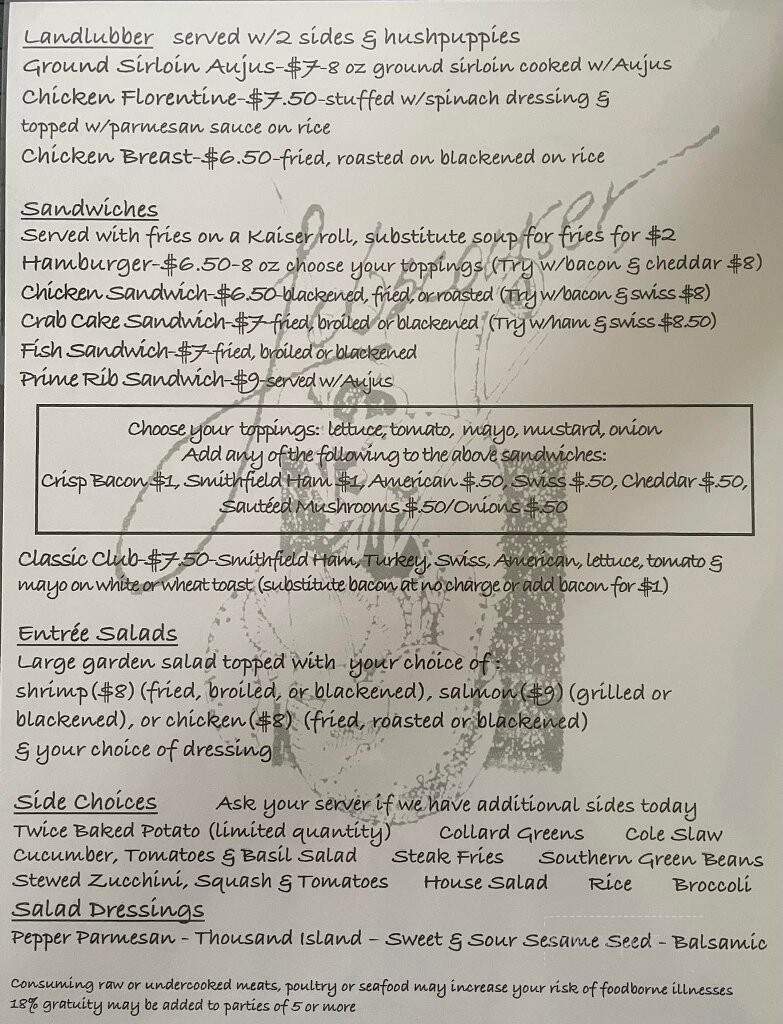 Landlubber served w/2 sides & hushpuppies
Ground Sirloin Aujus-$7-8 oz ground sirloin cooked w/Aujus
Chicken Florentine-$7.50-stuffed w/spinach dressing &
topped w/parmesan sauce on rice
Chicken Breast-$6.50-fried, roasted on blackened on rice
Sandwiches
Served with fries on a Kaiser roll, substitute soup for fries for $2
Hamburger-$6.50-8 oz choose your toppings (Try w/bacon & cheddar $8)
Chicken Sandwich-$6.50-blackened, fried, or roasted (Try w/bacon & swiss $8)
Crab Cake Sandwich-$7-fried, broiled or blackened (Try w/ham & swiss $8.50)
Fish Sandwich-$7-fried, broiled or blackened
Prime Rib Sandwich-$9-served w/Aujus
Choose your toppings: lettuce, tomato, mayo, mustard, onion
Add any of the following to the above sandwiches:
Crisp Bacon $1, Smithfield Ham $1, American $.50, Swiss $.50, Cheddar $.50,
Sautéed Mushrooms $.50/Onions $.50
Classic Club-$7.50-Smithfield Ham, Turkey, Swiss, American, lettuce, tomato &
mayo on white or wheat toast (substitute bacon at no charge or add bacon for $1)
Entrée Salads
Large garden salad topped with your choice of:
shrimp($8) (fried, broiled, or blackened), salmon($9) (grilled or
blackened), or chicken($8) (fried, roasted or blackened)
& your choice of dressing
Side Choices Ask your server if we have additional sides today
Twice Baked Potato (limited quantity) Collard Greens Cole Slaw
Cucumber, Tomatoes & Basil Salad Steak Fries Southern Green Beans
Stewed Zucchini, Squash & Tomatoes House Salad Rice Broccoli
Salad Dressings
Pepper Parmesan - Thousand Island - Sweet & Sour Sesame Seed - Balsamic
Consuming raw or undercooked meats, poultry or seafood may increase your risk of foodborne illnesses
18% gratuity may be added to parties of 5 or more